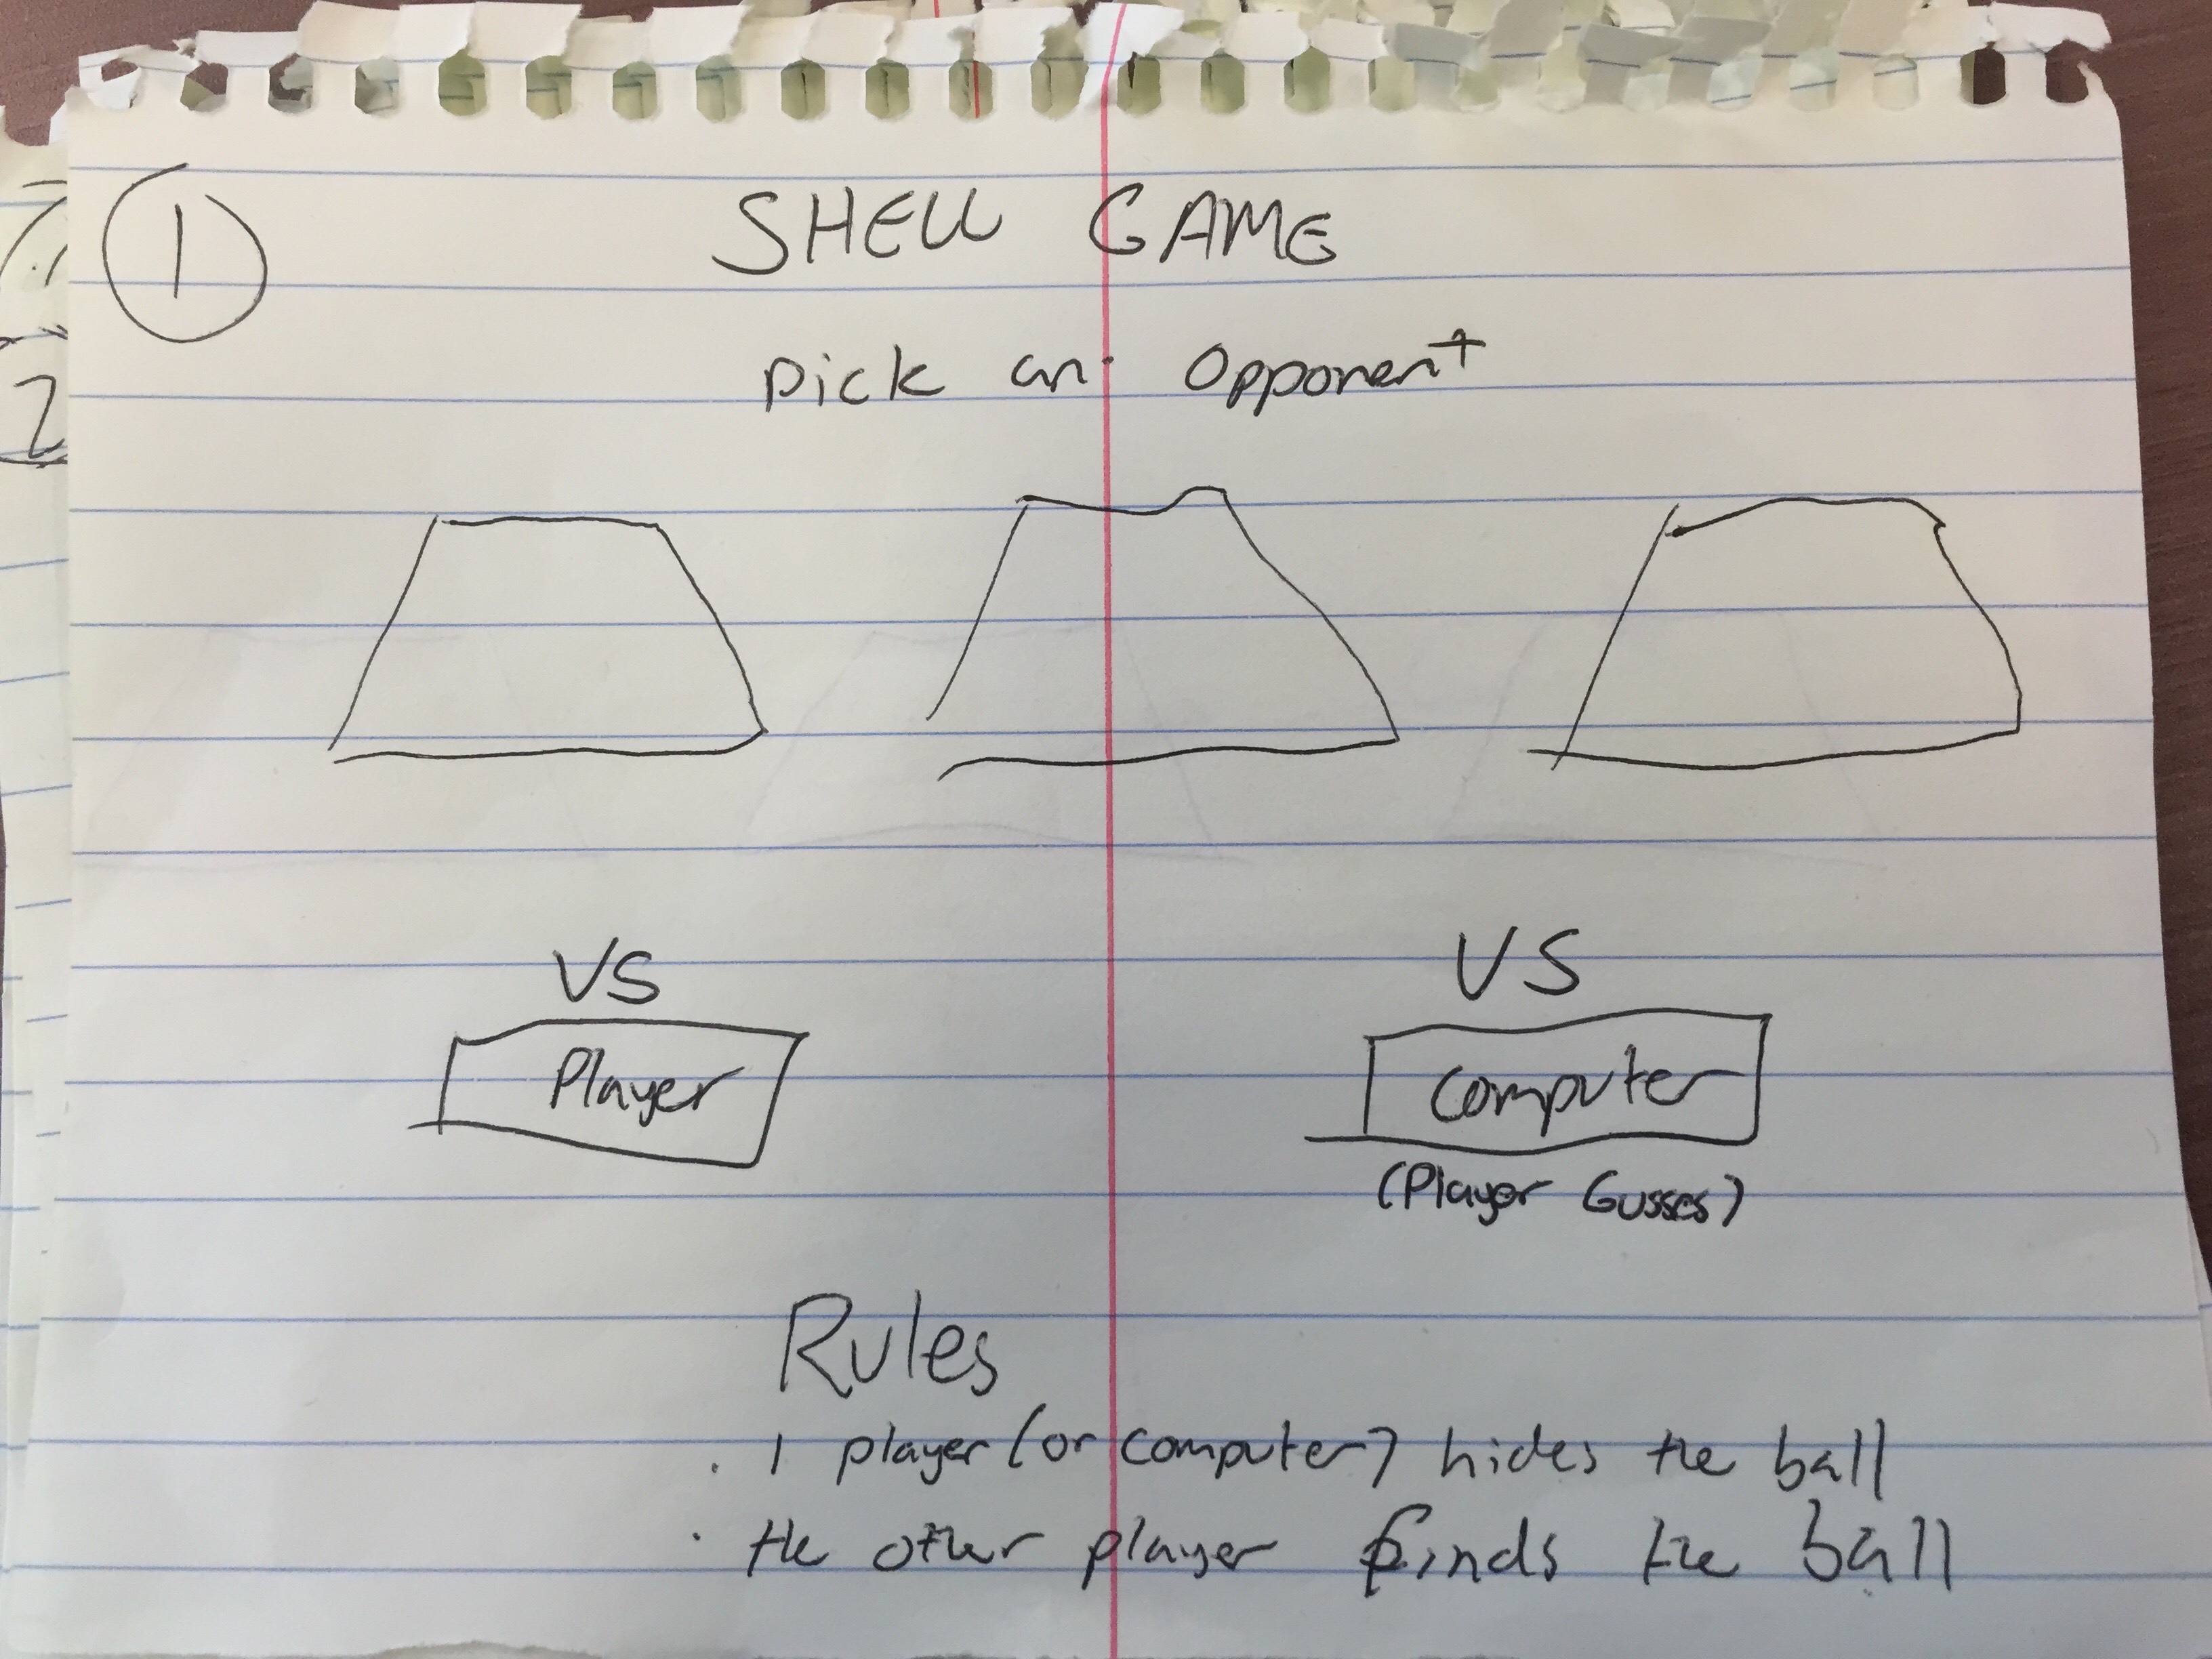 1
SHELL GAME
pick an opponent
VS
VS
Player
Computer
(Player Gusses)
Rules
. 1 player (or computer) hides the ball
. the other player finds the ball
2